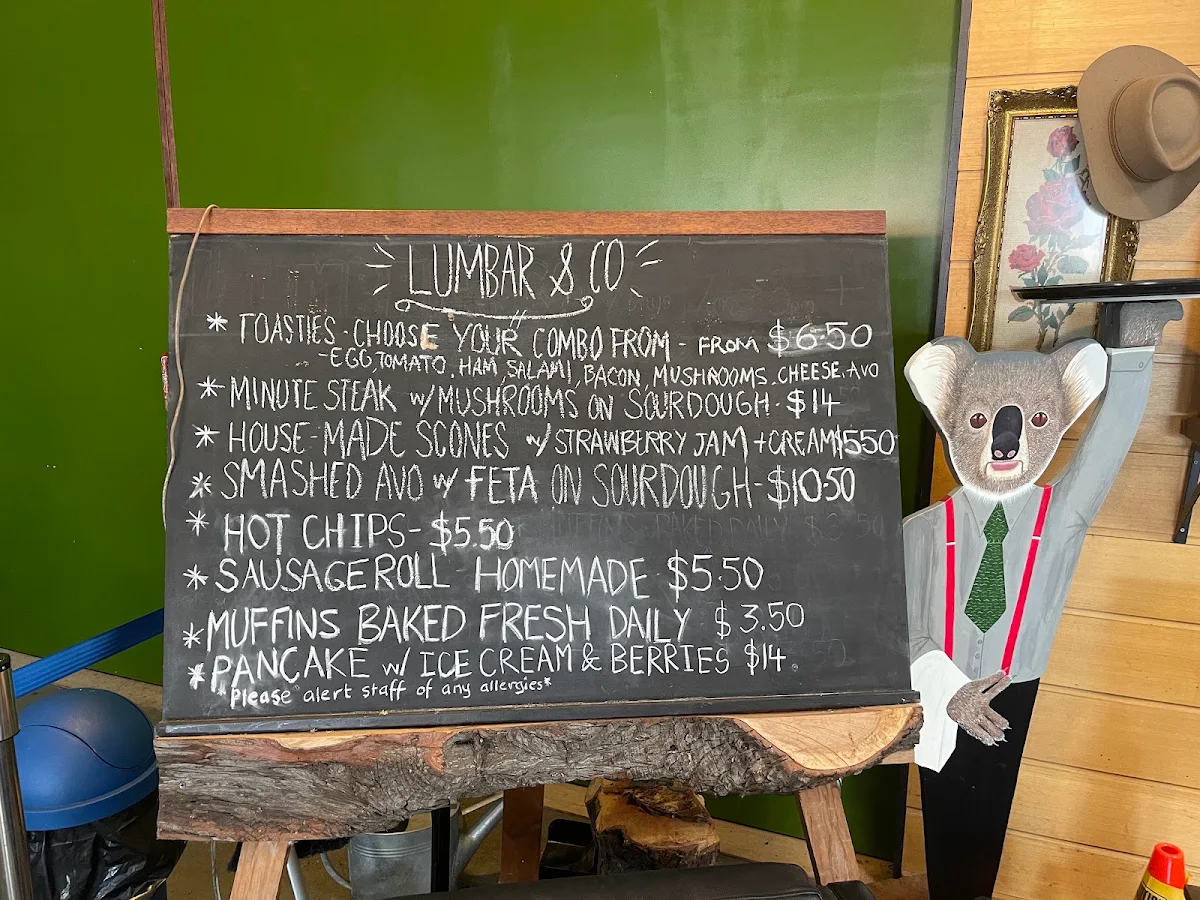 LUMBAR & CO
* TOASTIES - CHOOSE YOUR COMBO FROM - FROM $6.50
- EGG, TOMATO, HAM, SALAMI, BACON, MUSHROOMS. CHEESE. AVO
* MINUTE STEAK w/ MUSHROOMS ON SOURDOUGH - $14
* HOUSE-MADE SCONES w/ STRAWBERRY JAM + CREAM $550
* SMASHED AVO w/ FETA ON SOURDOUGH - $10.50
* HOT CHIPS - $5.50
* SAUSAGE ROLL HOMEMADE $5.50
* MUFFINS BAKED FRESH DAILY $3.50
* PANCAKE w/ ICE CREAM & BERRIES $14.
Please alert staff of any allergies*